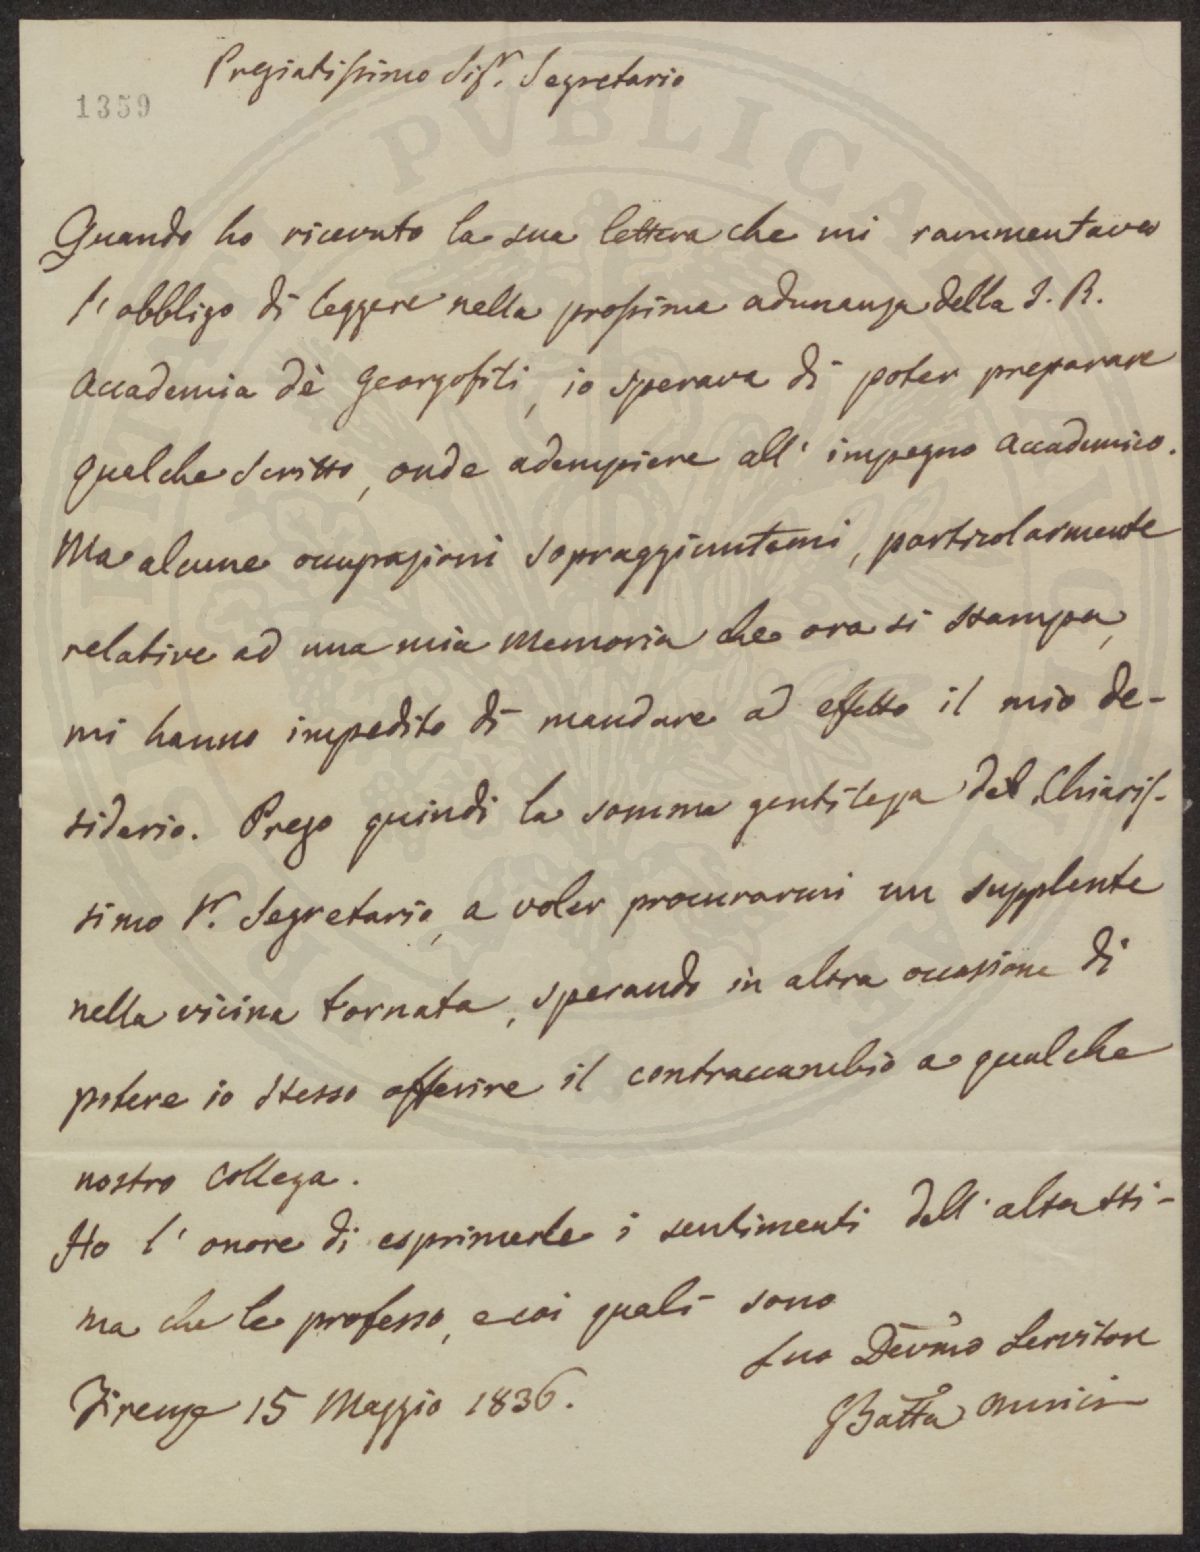 Pregiatissimo Sigr. Segretario
1359
PVBLICAE
Quando ho ricevuto la sua lettera che mi rammentava
l'obbligo di leggere nella prossima adunanza della I. R.
Accademia dè Georgofili, io sperava di poter preparare
qualche scritto, onde adempiere all' impegno accademico.
Ma alcune occupazioni sopraggiuntemi, particolarmente
relative ad una mia Memoria che ora si stampa,
mi hanno impedito di mandare ad effetto il mio de-
siderio. Prego quindi la somma gentilezza del Chiaris-
simo Sr. Segretario, a voler procurarmi un supplente
nella vicina tornata, sperando in altra occasione di
potere io stesso offerire il contraccambio a qualche
nostro Collega.
Ho l' onore di esprimerle i sentimenti dell' alta sti-
ma che le professo, e coi quali sono
Suo Devmo Servitore
Firenze 15 Maggio 1836.
GBatta